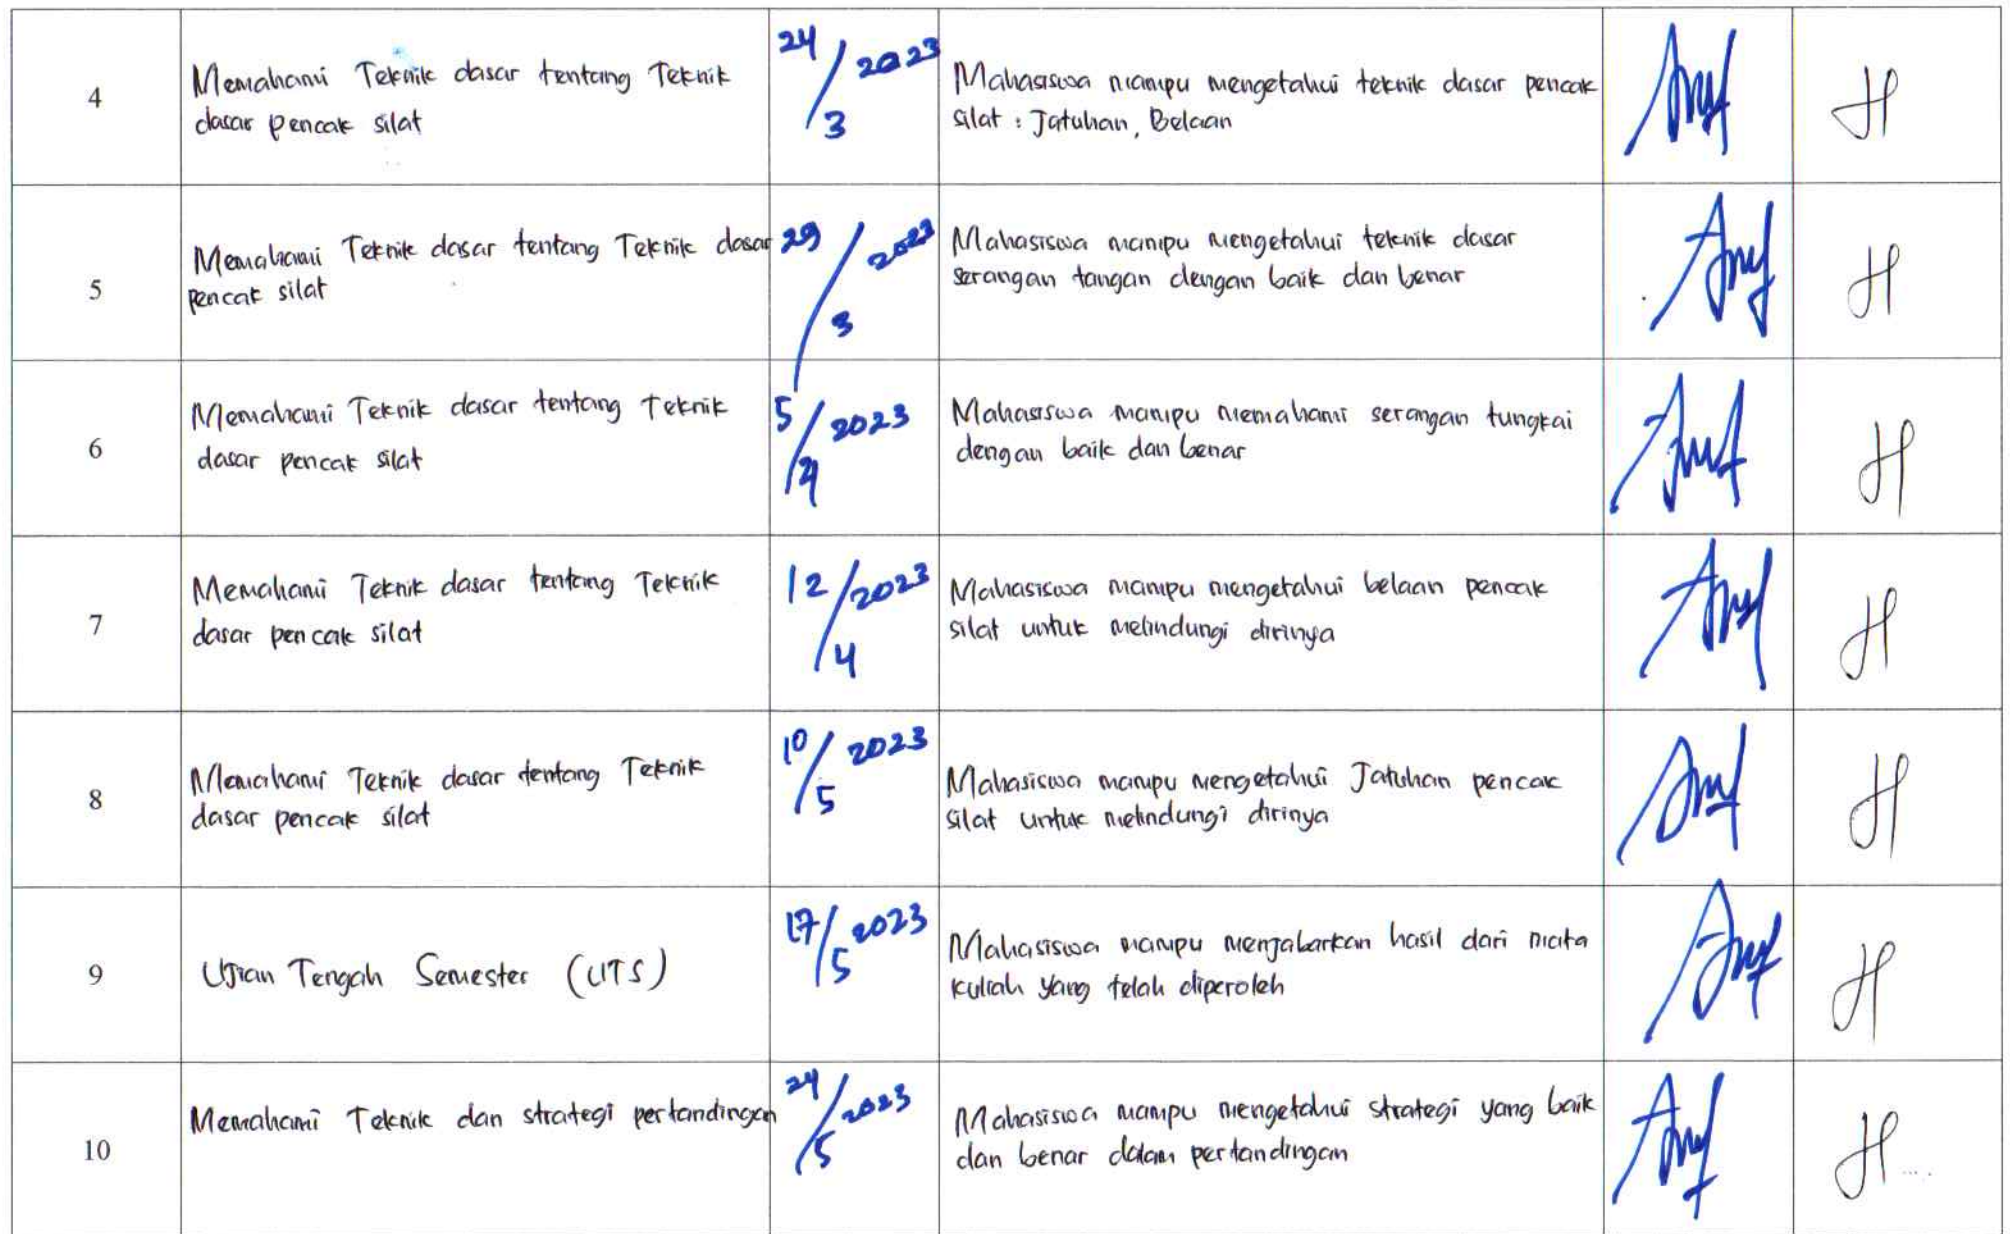 4
Memahami Teknik dasar tentang Teknik
dasar pencak silat
24/3 2023
Mahasiswa mampu mengetahui teknik dasar pencak
silat : Jatuhan, Belaan
5
Memahami Teknik dasar tentang Teknik dasar
pencak silat
29/3 2023
Mahasiswa mampu mengetahui teknik dasar
serangan tangan dengan baik dan benar
6
Memahami Teknik dasar tentang Teknik
dasar pencak silat
5/4 2023
Mahasiswa mampu memahami serangan tungkai
dengan baik dan benar
7
Memahami Teknik dasar tentang Teknik
dasar pencak silat
12/4 2023
Mahasiswa mampu mengetahui belaan pencak
silat untuk melindungi dirinya
8
Memahami Teknik dasar tentang Teknik
dasar pencak silat
10/5 2023
Mahasiswa mampu mengetahui Jatuhan pencak
silat untuk melindungi dirinya
9
Ujian Tengah Semester (UTS)
17/5 2023
Mahasiswa mampu menjabarkan hasil dari mata
kuliah yang telah diperoleh
10
Memahami Teknik dan strategi pertandingan
24/5 2023
Mahasiswa mampu mengetahui strategi yang baik
dan benar dalam pertandingan